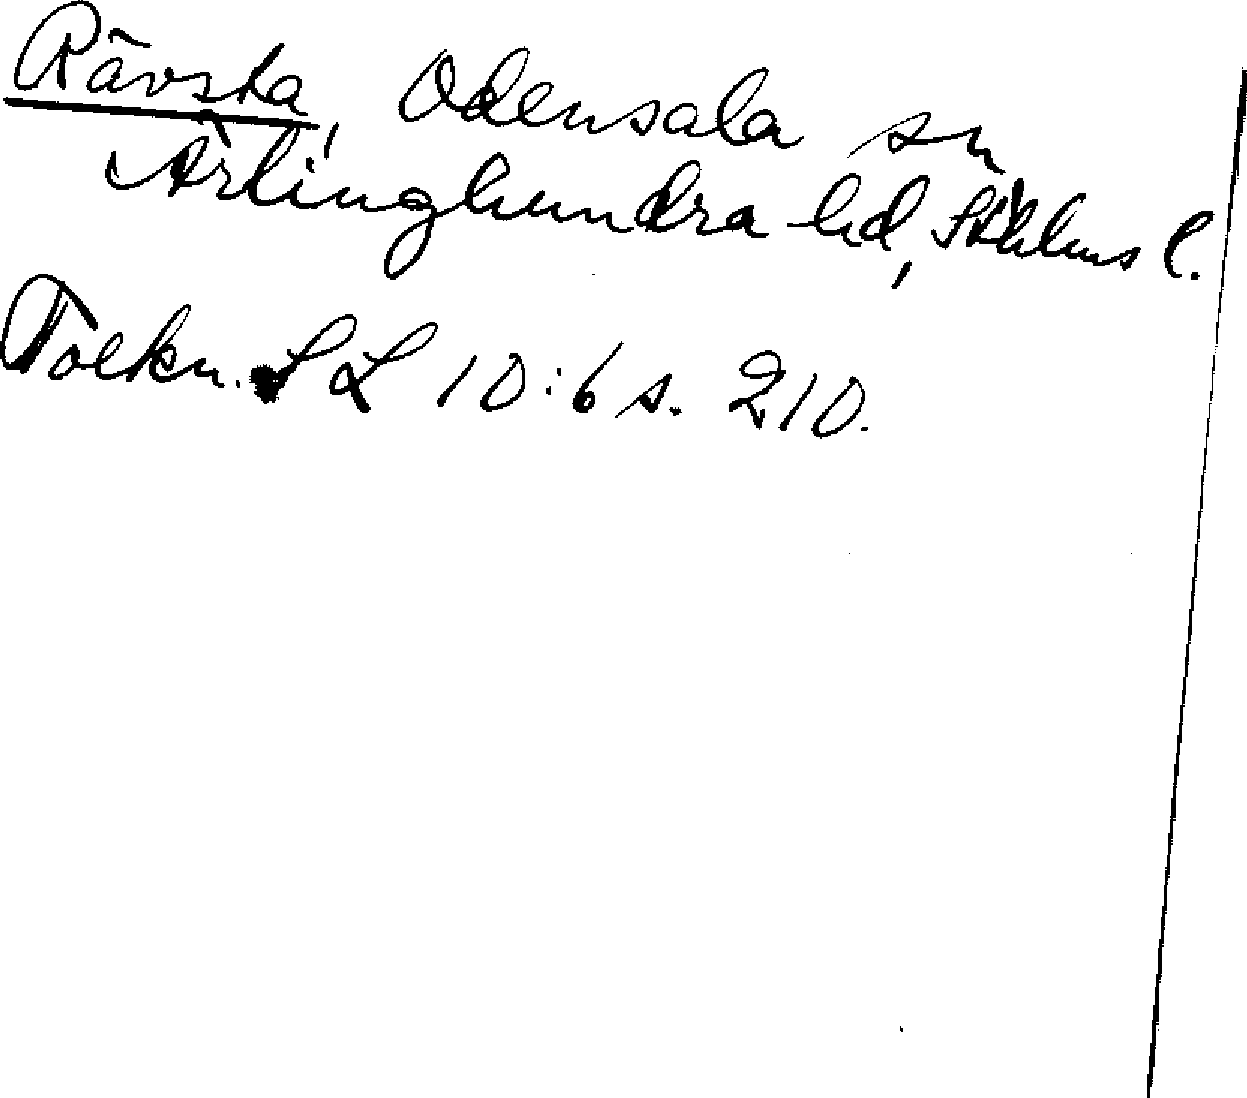 Rävsta, Odensala sn
Ärlinghundra hd, Sthlms l.
Tolkn. SL 10:6 s. 210.